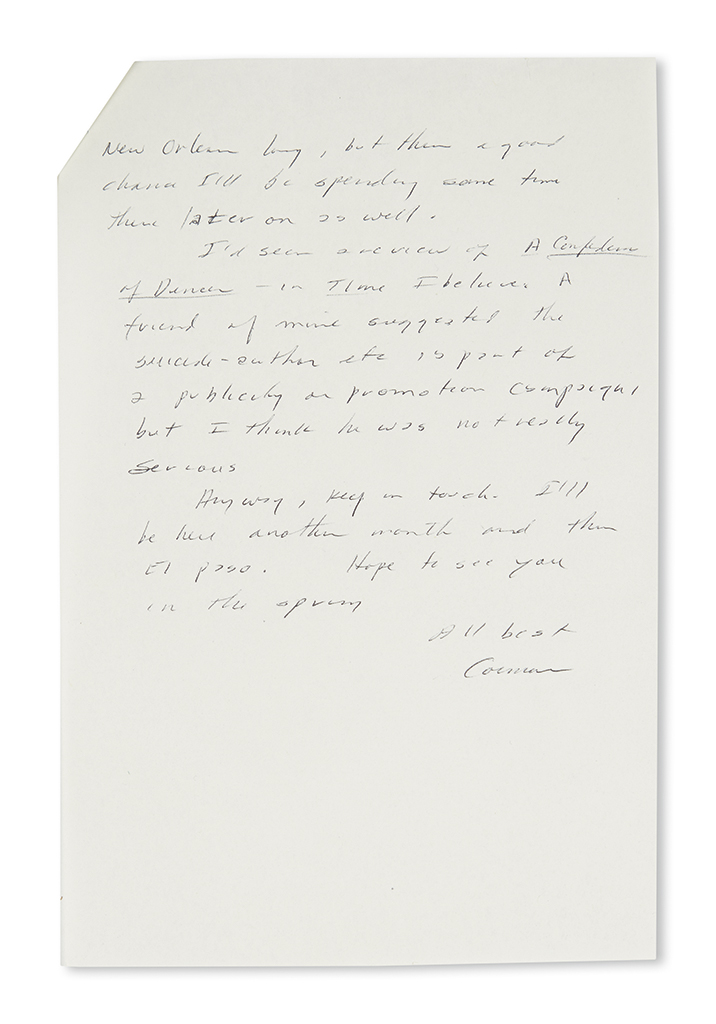 New Orleans long, but there a good
chance I'll be spending some time
there later on as well.
I'd seen a review of A Confederacy
of Dunces - in Time I believe. A
friend of mine suggested the
suicide-author etc is part of
a publicity or promotion campaign,
but I think he was not really
serious
Anyway, keep in touch. I'll
be here another month and then
El paso. Hope to see you
in the spring
All best
Cormac